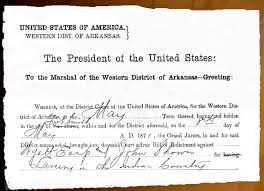 UNITED STATES OF AMERICA,
WESTERN DIST. OF ARKANSAS.
The President of the United States:
To the Marshal of the Western District of Arkansas—Greeting:
WHEREAS, at the District Court of the United States of America, for the Western Dis-
trict of Arkansas, May Term thereof, begun and holden
in the District aforesaid, on the day of
May A. D. 1871, the Grand Jurors, in and for said
District brought into Court a Bill of Indictment against
Wyatt Earp and John Shown for having
Larceny in the Indian Country